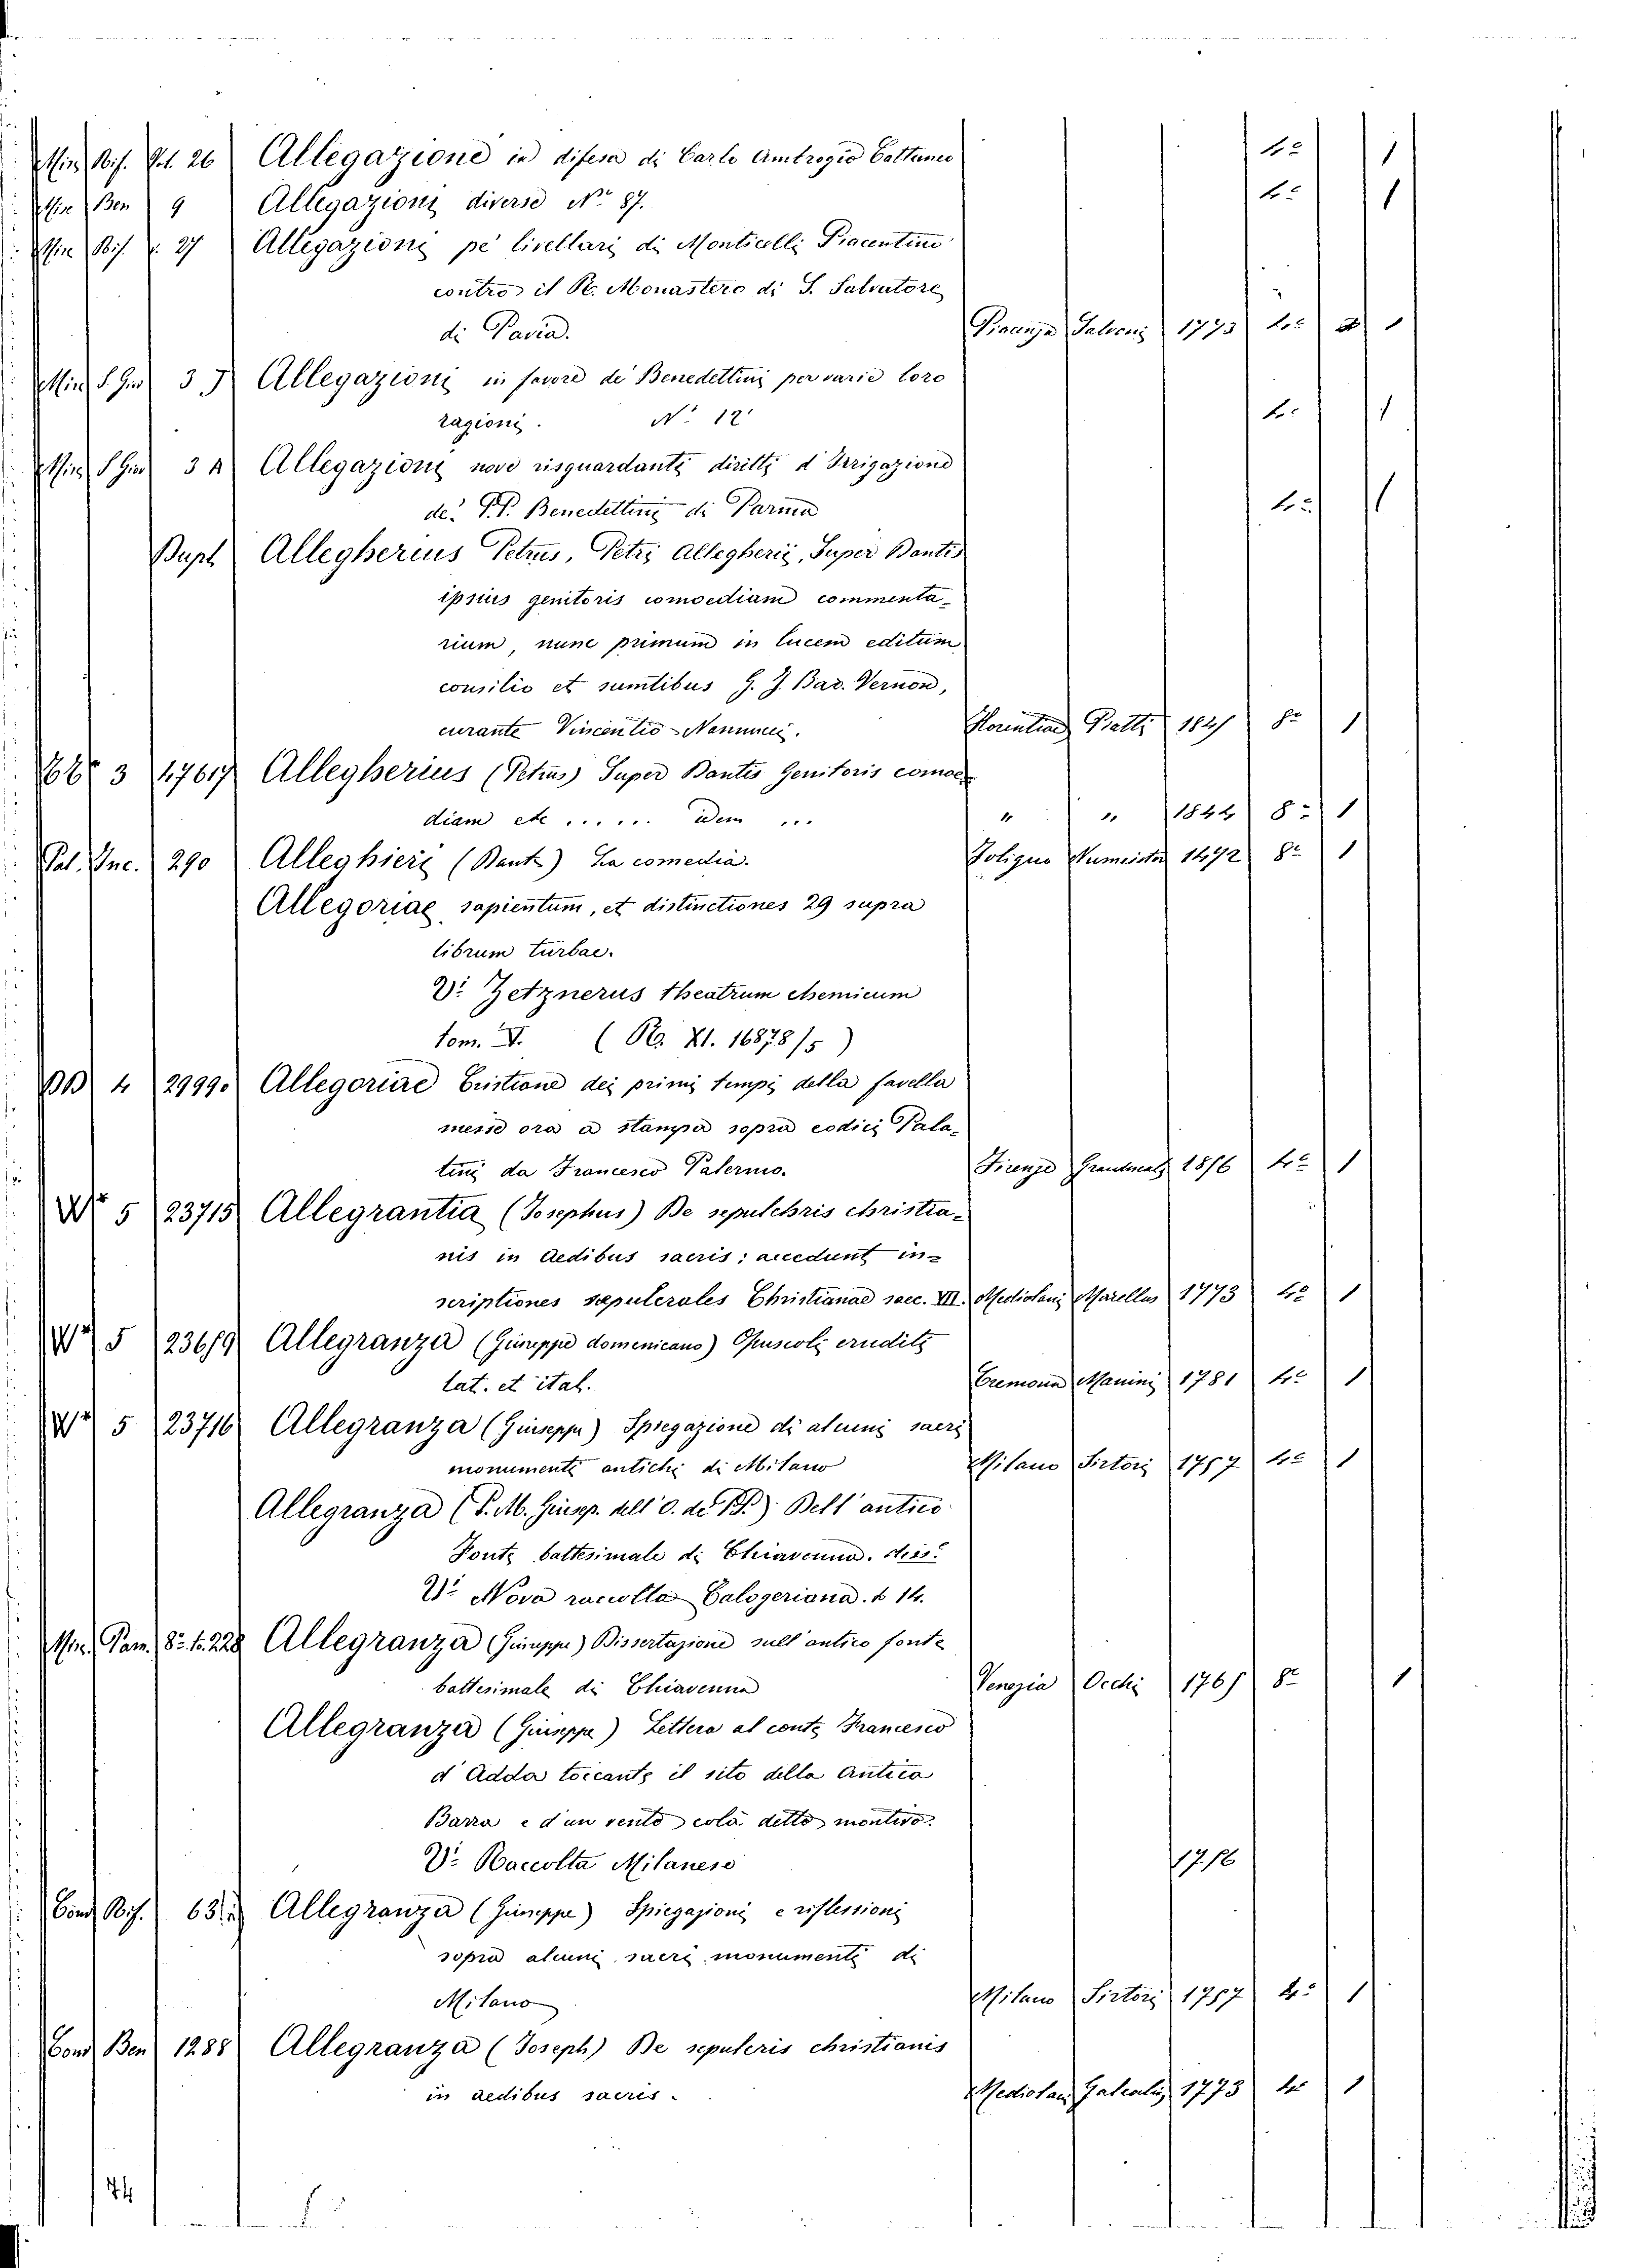 Min. Bif. Vol. 26 Allegazione in difesa di Carlo Ambrogio Cattaneo 4° 1
Min Ben 9 Allegazioni diverse N° 87. 4° 1
Min Bif. v. 27 Allegazioni pe' livellari di Monticelli Piacentino
contro il R. Monastero di S. Salvatore
di Pavia. Piacenza Salvoni 1773 4° 1
Min S. Gio 3 J Allegazioni in favore de' Benedettini per varie loro
ragioni. N° 12 4° 1
Min S Gio 3 A Allegazioni nove risguardanti diritti d'Irrigazione
de' P.P. Benedettini di Parma 4° 1
Dupl Allegherius Petrus, Petri Allegherii, Super Dantis
ipsius genitoris comoediam commenta-
rium, nunc primum in lucem editum
consilio et sumtibus G. J. Bar. Vernon,
curante Vincentio Nannucci. Florentiae Piatti 1845 8° 1
3 47617 Allegherius (Petrus) Super Dantis Genitoris comoe-
diam etc ...... idem ... " " 1844 8° 1
Pal. Inc. 290 Alleghieri (Dante) La comedia. Foligno Numeister 1472 8° 1
Allegoriae sapientum, et distinctiones 29 supra
librum turbae.
V: Zetznerus theatrum chemicum
tom. V. (R. XI. 16878/5)
BB 4 2999. Allegoriae Cristiane dei primi tempi della favella
messe ora a stampa sopra codici Pala-
tini da Francesco Palermo. Firenze 1856 4° 1
W 5 23715 Allegrantia (Josephus) De sepulchris christia-
nis in Aedibus sacris; accedunt in-
scriptiones sepulcrales Christianae saec. VII. Mediolani Marellus 1773 4° 1
W 5 23659 Allegranza (Giuseppe domenicano) Opuscoli eruditi
lat. et ital. Cremona Manini 1781 4° 1
W 5 23716 Allegranza (Giuseppe) Spiegazione di alcuni sacri
monumenti antichi di Milano Milano Sirtori 1757 4° 1
Allegranza (P. M. Giusep. dell' O. de' PP.) Dell' antico
Fonte battesimale di Chiavenna. diss:
V: Nova raccolta Calogeriana. t 14.
Min. Pam. 8° t. 228 Allegranza (Giuseppe) Dissertazione sull' antico fonte
battesimale di Chiavenna Venezia Occhi 1765 8° 1
Allegranza (Giuseppe) Lettera al conte Francesco
d'Adda toccante il sito della Antica
Barra e d'un vento colà detto montivo.
V: Raccolta Milanese 1756
Cond Bif. 63 Allegranza (Giuseppe) Spiegazioni e riflessioni
sopra alcuni sacri monumenti di
Milano Milano Sirtori 1757 4° 1
Cond Ben 1288 Allegranza (Joseph) De sepulcris christianis
in aedibus sacris. Mediolani Galeatii 1773 4° 1
74